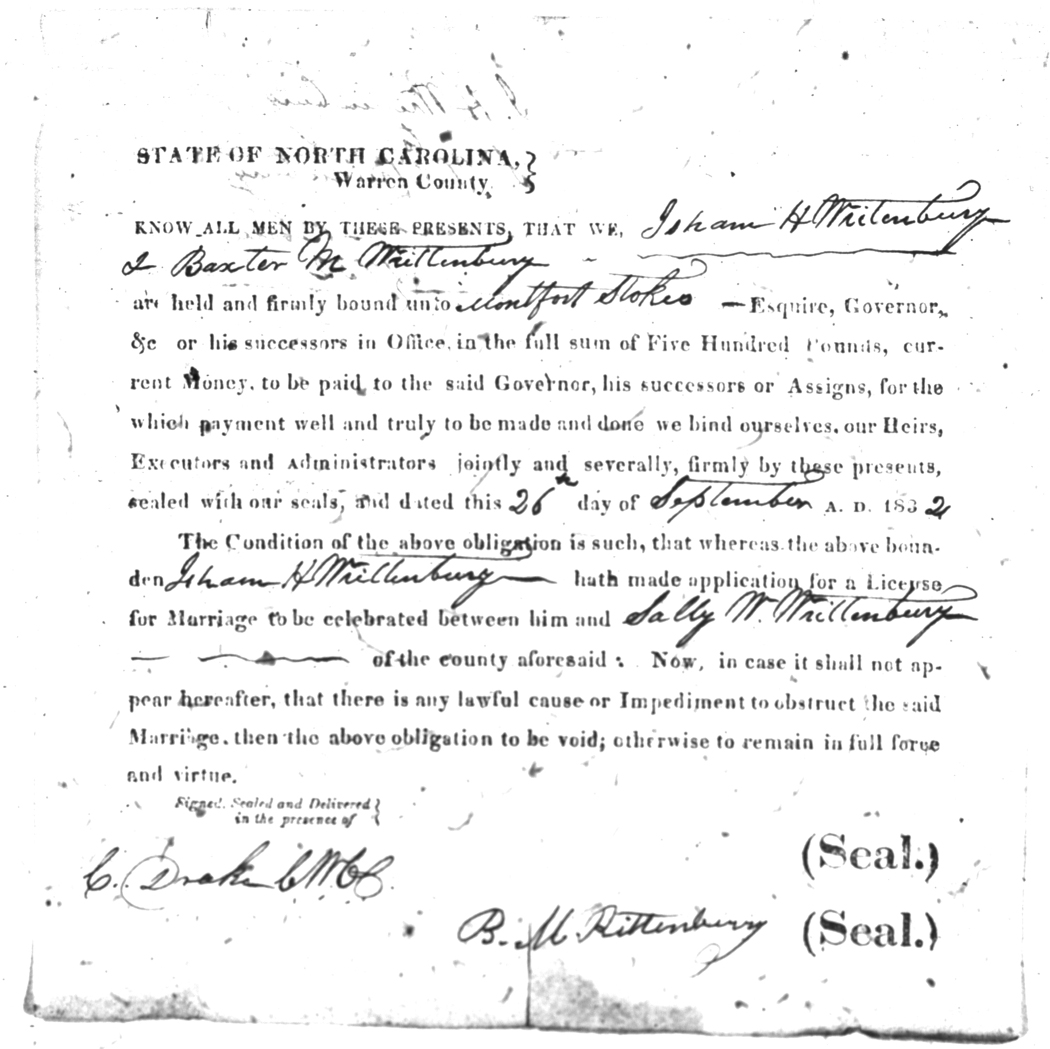 STATE OF NORTH CAROLINA,
Warren County
KNOW ALL MEN BY THESE PRESENTS, THAT WE, Isham H Writenbury
& Baxter M Writtenbury
are held and firmly bound unto Montfort Stokes — Esquire, Governor,
&c or his successors in Office, in the full sum of Five Hundred Pounds, cur-
rent Money, to be paid to the said Governor, his successors or Assigns, for the
which payment well and truly to be made and done we bind ourselves, our Heirs,
Executors and Administrators jointly and severally, firmly by these presents,
sealed with our seals, and dated this 26th day of September A. D. 1832
The Condition of the above obligation is such, that whereas the above boun-
den Isham H Writtenbury hath made application for a License
for Marriage to be celebrated between him and Sally W. Writtenbury
of the county aforesaid: Now, in case it shall not ap-
pear hereafter, that there is any lawful cause or Impediment to obstruct the said
Marriage, then the above obligation to be void; otherwise to remain in full force
and virtue.
Signed, Sealed and Delivered
in the presence of
(Seal.)
C. Drake CWCC
B. M Rittenbury (Seal.)